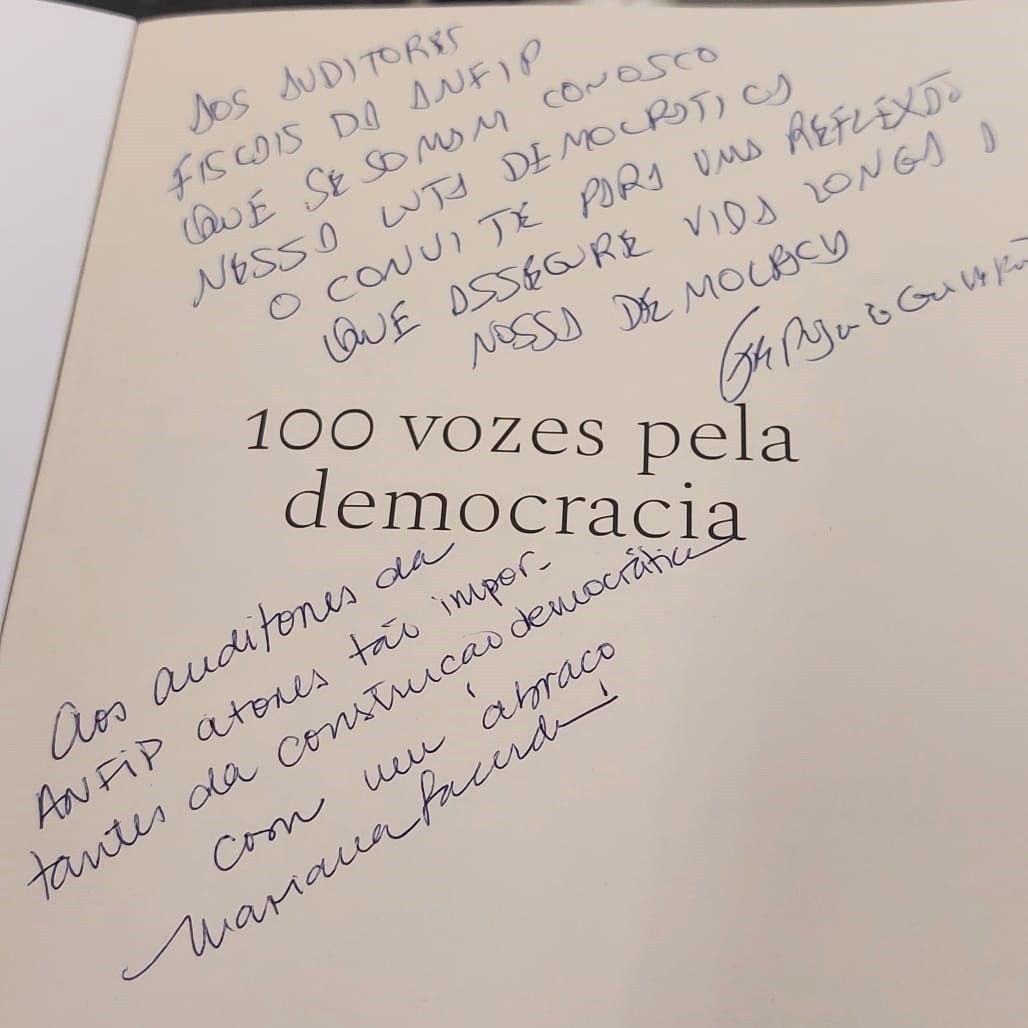 AOS AUDITORES
FISCAIS DA ANFIP
QUE SE SOMAM CONOSCO
NESSA LUTA DEMOCRÁTICA
O CONVITE PARA UMA REFLEXÃO
QUE ASSEGURE VIDA LONGA A
NOSSA DEMOCRACIA
100 vozes pela
democracia
Aos auditores da
ANFIP atores tão impor-
tantes da construcao democrática
com um abraco
Mariana